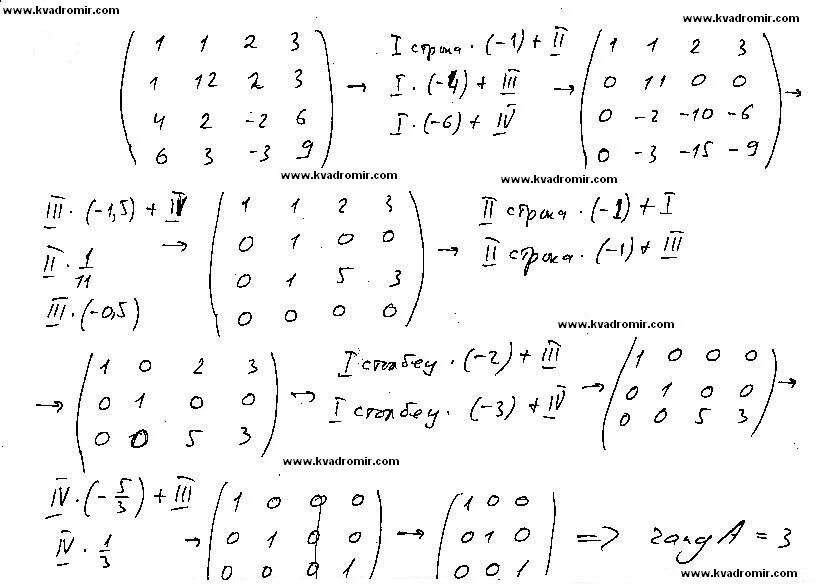 www.kvadromir.com
www.kvadromir.com
1 1 2 3
1 12 2 3
4 2 -2 6
6 3 -3 9
→
I строка · (-1) + II
I · (-4) + III
I · (-6) + IV
→
1 1 2 3
0 11 0 0
0 -2 -10 -6
0 -3 -15 -9
→
www.kvadromir.com
www.kvadromir.com
III · (-1,5) + IV
II · 1/11
III · (-0,5)
→
1 1 2 3
0 1 0 0
0 1 5 3
0 0 0 0
→
II строка · (-1) + I
II строка · (-1) + III
www.kvadromir.com
→
1 0 2 3
0 1 0 0
0 0 5 3
→
I столбец · (-2) + III
I столбец · (-3) + IV
→
1 0 0 0
0 1 0 0
0 0 5 3
→
www.kvadromir.com
IV · (-5/3) + III
IV · 1/3
→
1 0 0 0
0 1 0 0
0 0 0 1
→
1 0 0
0 1 0
0 0 1
=> rang A = 3
www.kvadromir.com